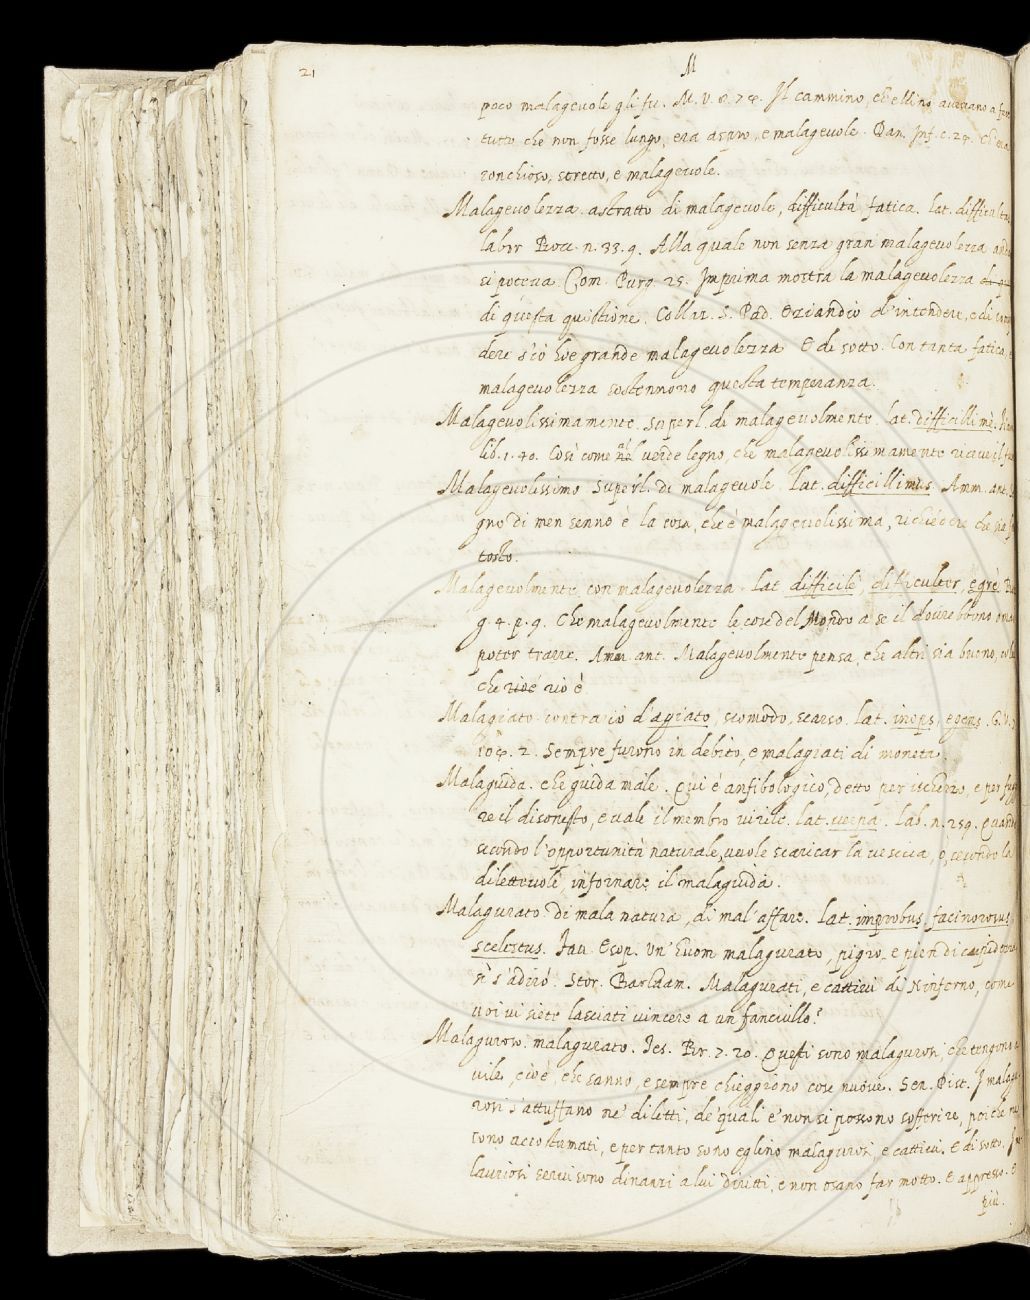 21
M
poco malageuole gli fu. M. V. 8. 74. Il cammino, ch'ellino aueuano a fare
tutto che non fosse lungo, era aspro, e malageuole. Dan. Inf. c. 24. Ch'era
ronchioso, stretto, e malageuole.
Malageuolezza. astratto di malageuole, difficultà fatica. lat. difficultas
labor Bocc. n. 33. 9. Alla quale non senza gran malageuolezza
si poteua. Com. Purg. 25. Imprima mostra la malageuolezza
di questa quistione. Collaz. S. Pad. Eziandio d'intendere, e di
dere s'ciò hoe grande malageuolezza. E di sotto. Con tanta fatica, e
malageuolezza sostennono questa temperanza.
Malageuolissimamente. Superl. di malageuolmente. lat. difficillimè.
lib. 1. 40. Così come 'l verde legno, che malageuolissimamente riceue il
Malageuolissimo. Superl. di malageuole. lat. difficillimus. Amm. ant.
gno di men senno è la cosa, che è malageuolissima, richiedere che sia
tosto.
Malageuolmente, con malageuolezza. lat. difficilè, difficulter, egrè.
g. 4. p. 9. Che malageuolmente le cose del Mondo a se il dourebbono
poter trarre. Amm. ant. Malageuolmente pensa, che altri sia buono,
che rio è
Malagiato. contrario d'agiato, scomodo, scarso. lat. inops, egens. G. V.
104. 2. Sempre furono in debito, e malagiati di moneta.
Malaguida. che guida male. Qui è anfibologico, detto per ischerzo, e per
re il disonesto, e uale il membro virile. lat. uerpa. Lab. n. 259. Quando
secondo l'opportunità naturale, uuole scaricar la uescica, o, secondo la
dilettevole, infornare il malaguida.
Malagurato. di mala natura, di mal'affare. lat. improbus, facinorosus,
scelestus. Fau. Esop. Un' huom malagurato, pigro, e pien di
n' s'adirò. Stor. Barlaam. Malagurati, e cattiui di Ninferno, come
uoi ui siete lasciati uincere a un fanciullo?
Malaguroso. malagurato. Tes. Br. 7. 20. Questi sono malagurosi, che tengono a
uile, cioè, che sanno, e sempre chieggiono cose nuoue. Sen. Pist. I
rosi s'attuffano ne' diletti, de' quali e' non si possono sofferire, poi che ne
sono accostumati, e per tanto sono eglino malagurosi, e cattiui. E di sotto.
laurosi serui sono dinanzi a lui diritti, e non osano far motto. E appresso. E
più.